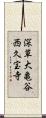 深草大亀谷西久宝寺